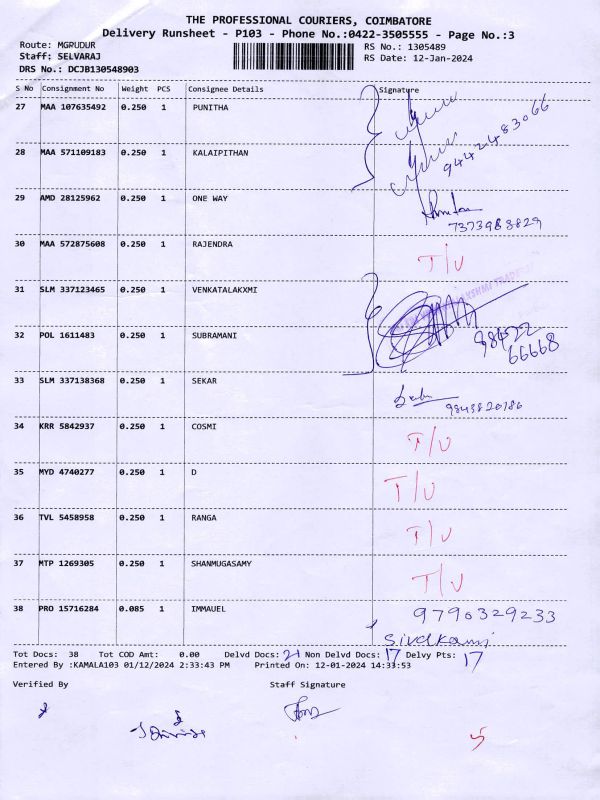 THE PROFESSIONAL COURIERS, COIMBATORE
Delivery Runsheet - P103 - Phone No.:0422-3505555 - Page No.:3
Route: MGRUDUR RS No.: 1305489
Staff: SELVARAJ RS Date: 12-Jan-2024
DRS No.: DCJB130548903
S No Consignment No Weight PCS Consignee Details Signature
27 MAA 107635492 0.250 1 PUNITHA
28 MAA 571109183 0.250 1 KALAIPITHAN 9442483066
29 AMD 28125962 0.250 1 ONE WAY
7373988829
30 MAA 572875608 0.250 1 RAJENDRA T/U
31 SLM 337123465 0.250 1 VENKATALAKXMI
32 POL 1611483 0.250 1 SUBRAMANI 98422
66668
33 SLM 337138368 0.250 1 SEKAR
9843820186
34 KRR 5842937 0.250 1 COSMI T/U
35 MYD 4740277 0.250 1 D T/U
36 TVL 5458958 0.250 1 RANGA T/U
37 MTP 1269305 0.250 1 SHANMUGASAMY T/U
38 PRO 15716284 0.085 1 IMMAUEL 9790329233
Sivalkami
Tot Docs: 38 Tot COD Amt: 0.00 Delvd Docs: 21 Non Delvd Docs: 17 Delvy Pts: 17
Entered By :KAMALA103 01/12/2024 2:33:43 PM Printed On: 12-01-2024 14:33:53
Verified By Staff Signature